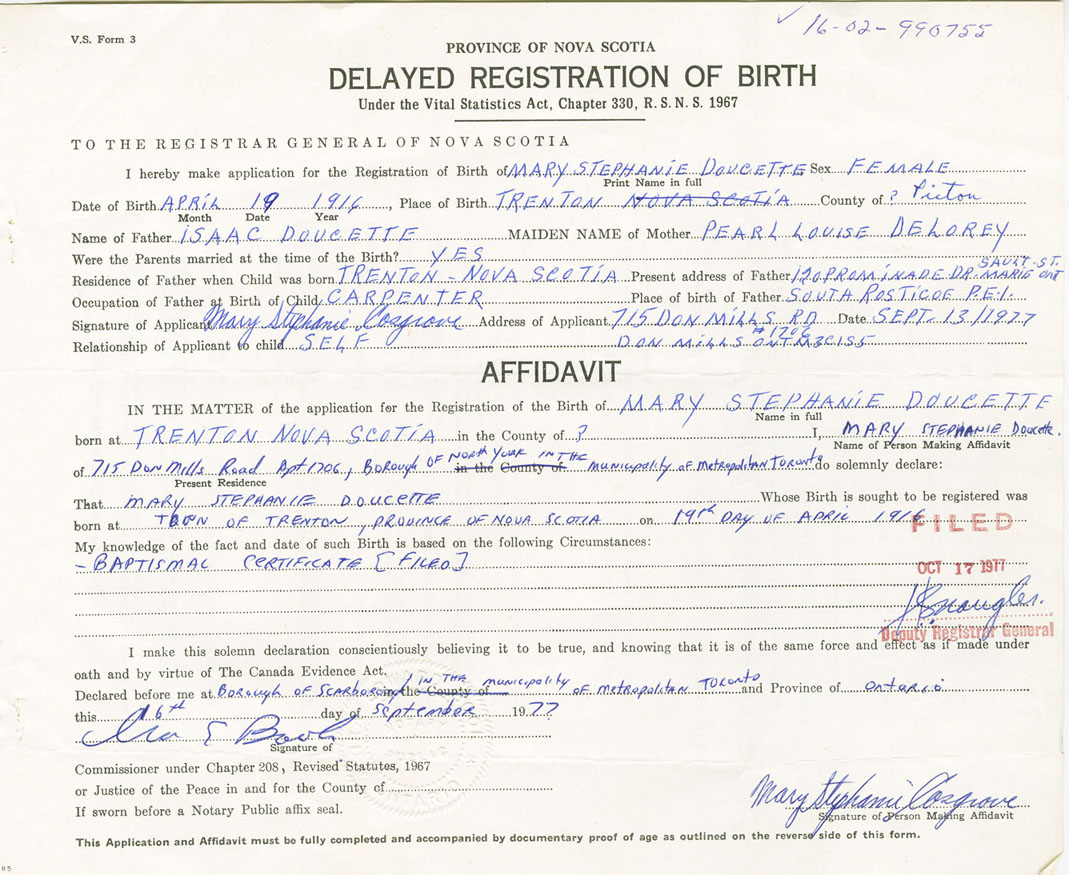 V.S. Form 3
✓ 16-02-990755
PROVINCE OF NOVA SCOTIA
DELAYED REGISTRATION OF BIRTH
Under the Vital Statistics Act, Chapter 330, R.S.N.S. 1967
TO THE REGISTRAR GENERAL OF NOVA SCOTIA
I hereby make application for the Registration of Birth of MARY STEPHANIE DOUCETTE Sex FEMALE
Print Name in full
Date of Birth APRIL 19 1916, Place of Birth TRENTON NOVA SCOTIA County of ? Pictou
Month Date Year
Name of Father ISAAC DOUCETTE MAIDEN NAME of Mother PEARL LOUISE DELOREY
Were the Parents married at the time of the Birth? YES
Residence of Father when Child was born TRENTON - NOVA SCOTIA Present address of Father 120 PROMINADE DR. SAULT ST. MARIE ONT
Occupation of Father at Birth of Child CARPENTER Place of birth of Father SOUTH ROSTICOE P.E.I.
Signature of Applicant Mary Stephanie Cosgrove Address of Applicant 715 DON MILLS RD Date SEPT. 13/1977
#1706
Relationship of Applicant to child SELF DON MILLS ONT M3C1S5
AFFIDAVIT
IN THE MATTER of the application for the Registration of the Birth of MARY STEPHANIE DOUCETTE
Name in full
born at TRENTON NOVA SCOTIA in the County of ? I, MARY STEPHANIE Doucette.
Name of Person Making Affidavit
of 715 Don Mills Road Apt 1706, BOROUGH OF NORTH YORK IN THE in the County of municipality of metropolitan TORONTO do solemnly declare:
Present Residence
That MARY STEPHANIE DOUCETTE Whose Birth is sought to be registered was
born at TOWN OF TRENTON, PROVINCE OF NOVA SCOTIA on 19th DAY OF APRIL 1916
FILED
My knowledge of the fact and date of such Birth is based on the following Circumstances:
- BAPTISMAL CERTIFICATE [FILED]
OCT 17 1977
Deputy Registrar General
I make this solemn declaration conscientiously believing it to be true, and knowing that it is of the same force and effect as if made under
oath and by virtue of The Canada Evidence Act.
Declared before me at BOROUGH OF SCARBORO / IN THE municipality in the County of OF METROPOLITAN TORONTO and Province of ontario
this 16th day of September 1977
Signature of
Commissioner under Chapter 208, Revised Statutes, 1967
or Justice of the Peace in and for the County of
If sworn before a Notary Public affix seal.
Mary Stephanie Cosgrove
Signature of Person Making Affidavit
This Application and Affidavit must be fully completed and accompanied by documentary proof of age as outlined on the reverse side of this form.
85